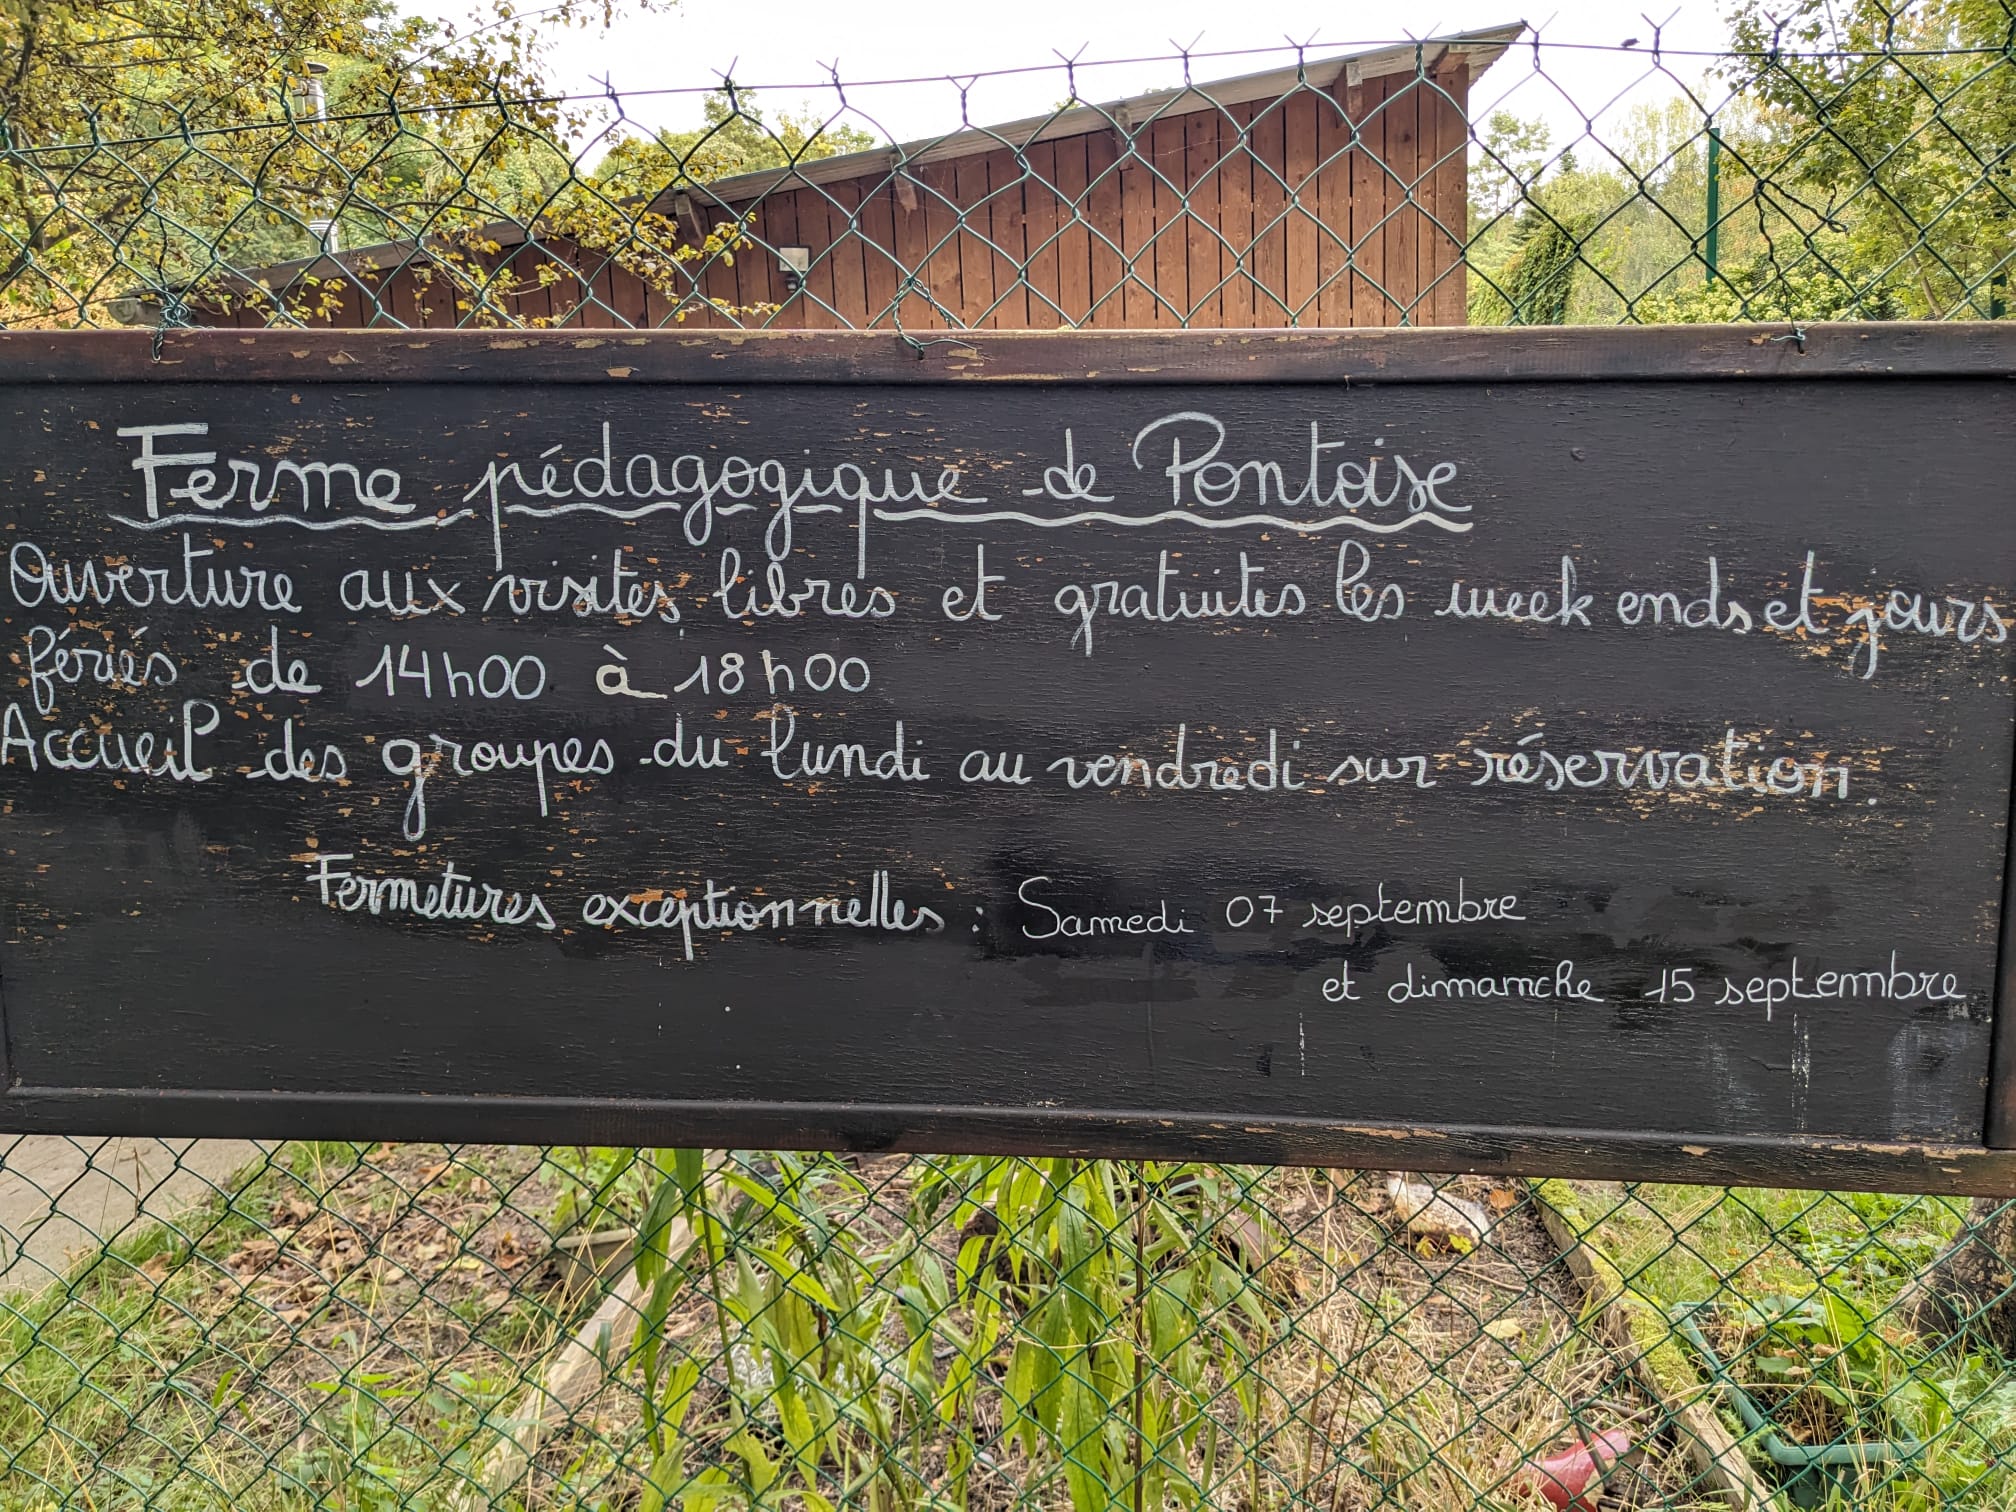 Ferme pédagogique de Pontoise
Ouverture aux visites libres et gratuites les week ends et jours
fériés de 14h00 à 18h00
Accueil des groupes du lundi au vendredi sur réservation.
Fermetures exceptionnelles : Samedi 07 septembre
et dimanche 15 septembre